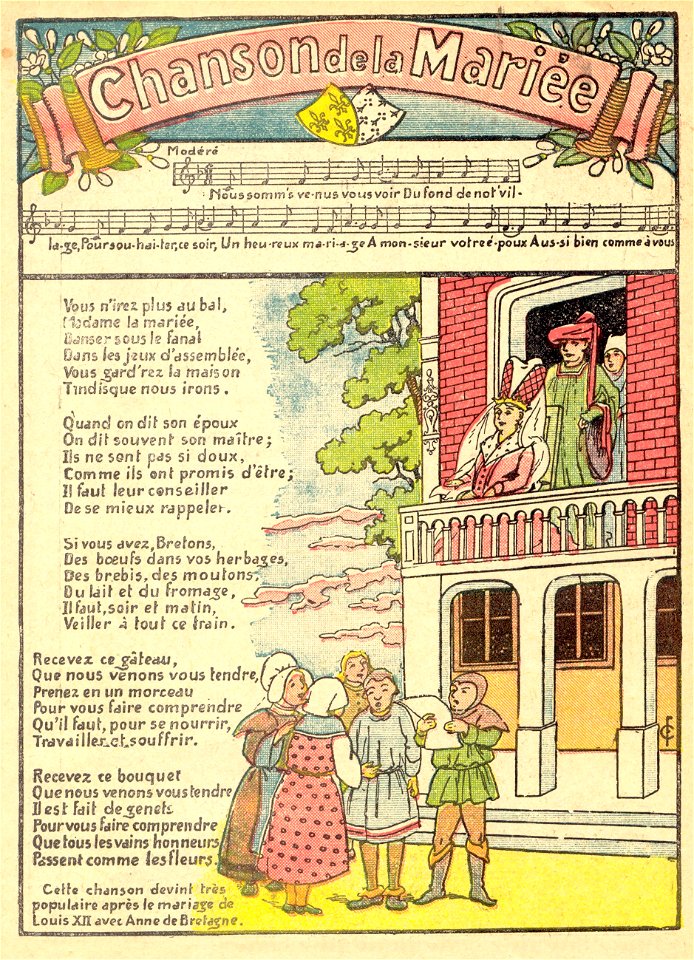 Chanson de la Mariée
Modéré
Nous somm's ve-nus vous voir Du fond de not' vil-
la-ge, Pour sou-hai-ter, ce soir, Un heu-reux ma-ri-a-ge A mon-sieur votre é-poux Aus-si bien comme à vous
Vous n'irez plus au bal,
Madame la mariée,
Danser sous le fanal
Dans les jeux d'assemblée,
Vous gard'rez la maison
Tindisque nous irons.
Quand on dit son époux
On dit souvent son maître;
Ils ne sont pas si doux,
Comme ils ont promis d'être;
Il faut leur conseiller
De se mieux rappeler.
Si vous avez, Bretons,
Des bœufs dans vos herbages,
Des brebis, des moutons,
Du lait et du fromage,
Il faut, soir et matin,
Veiller à tout ce train.
Recevez ce gâteau,
Que nous venons vous tendre,
Prenez en un morceau
Pour vous faire comprendre
Qu'il faut, pour se nourrir,
Travailler et souffrir.
Recevez ce bouquet
Que nous venons vous tendre
Il est fait de genets
Pour vous faire comprendre
Que tous les vains honneurs
Passent comme les fleurs.
Cette chanson devint très
populaire après le mariage de
Louis XII avec Anne de Bretagne.